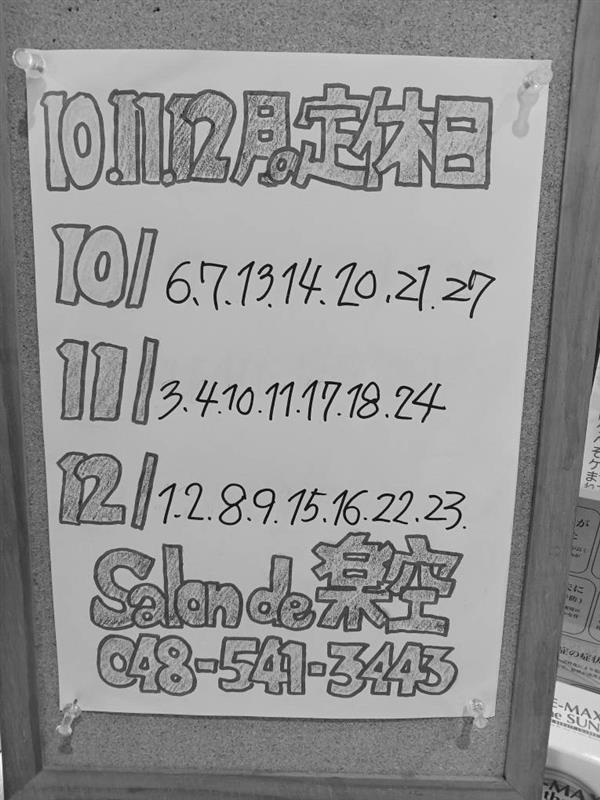 10.11.12月の定休日
10/ 6.7.13.14.20.21.27
11/ 3.4.10.11.17.18.24
12/ 1.2.8.9.15.16.22.23.
Salon de 楽空
048-541-3443
E-MAX
he SUN